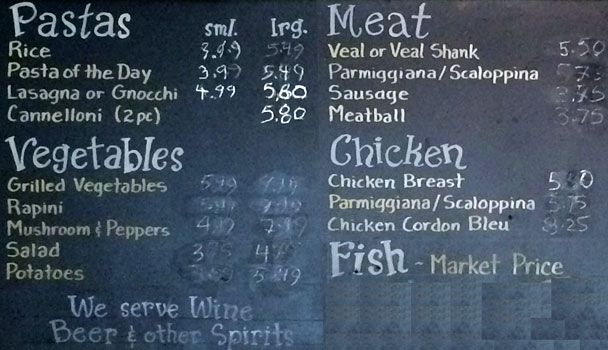 Pastas sml. lrg.
Rice 3.99 5.49
Pasta of the Day 3.99 5.49
Lasagna or Gnocchi 4.99 5.80
Cannelloni (2pc) 5.80
Vegetables
Grilled Vegetables 5.99
Rapini 5.99 7.99
Mushroom & Peppers 7.99
Salad 3.75 4.75
Potatoes 5.49
We serve Wine
Beer & other Spirits
Meat
Veal or Veal Shank 5.50
Parmiggiana/Scaloppina 5.75
Sausage 3.75
Meatball 3.75
Chicken
Chicken Breast
Parmiggiana/Scaloppina 5.75
Chicken Cordon Bleu
Fish - Market Price